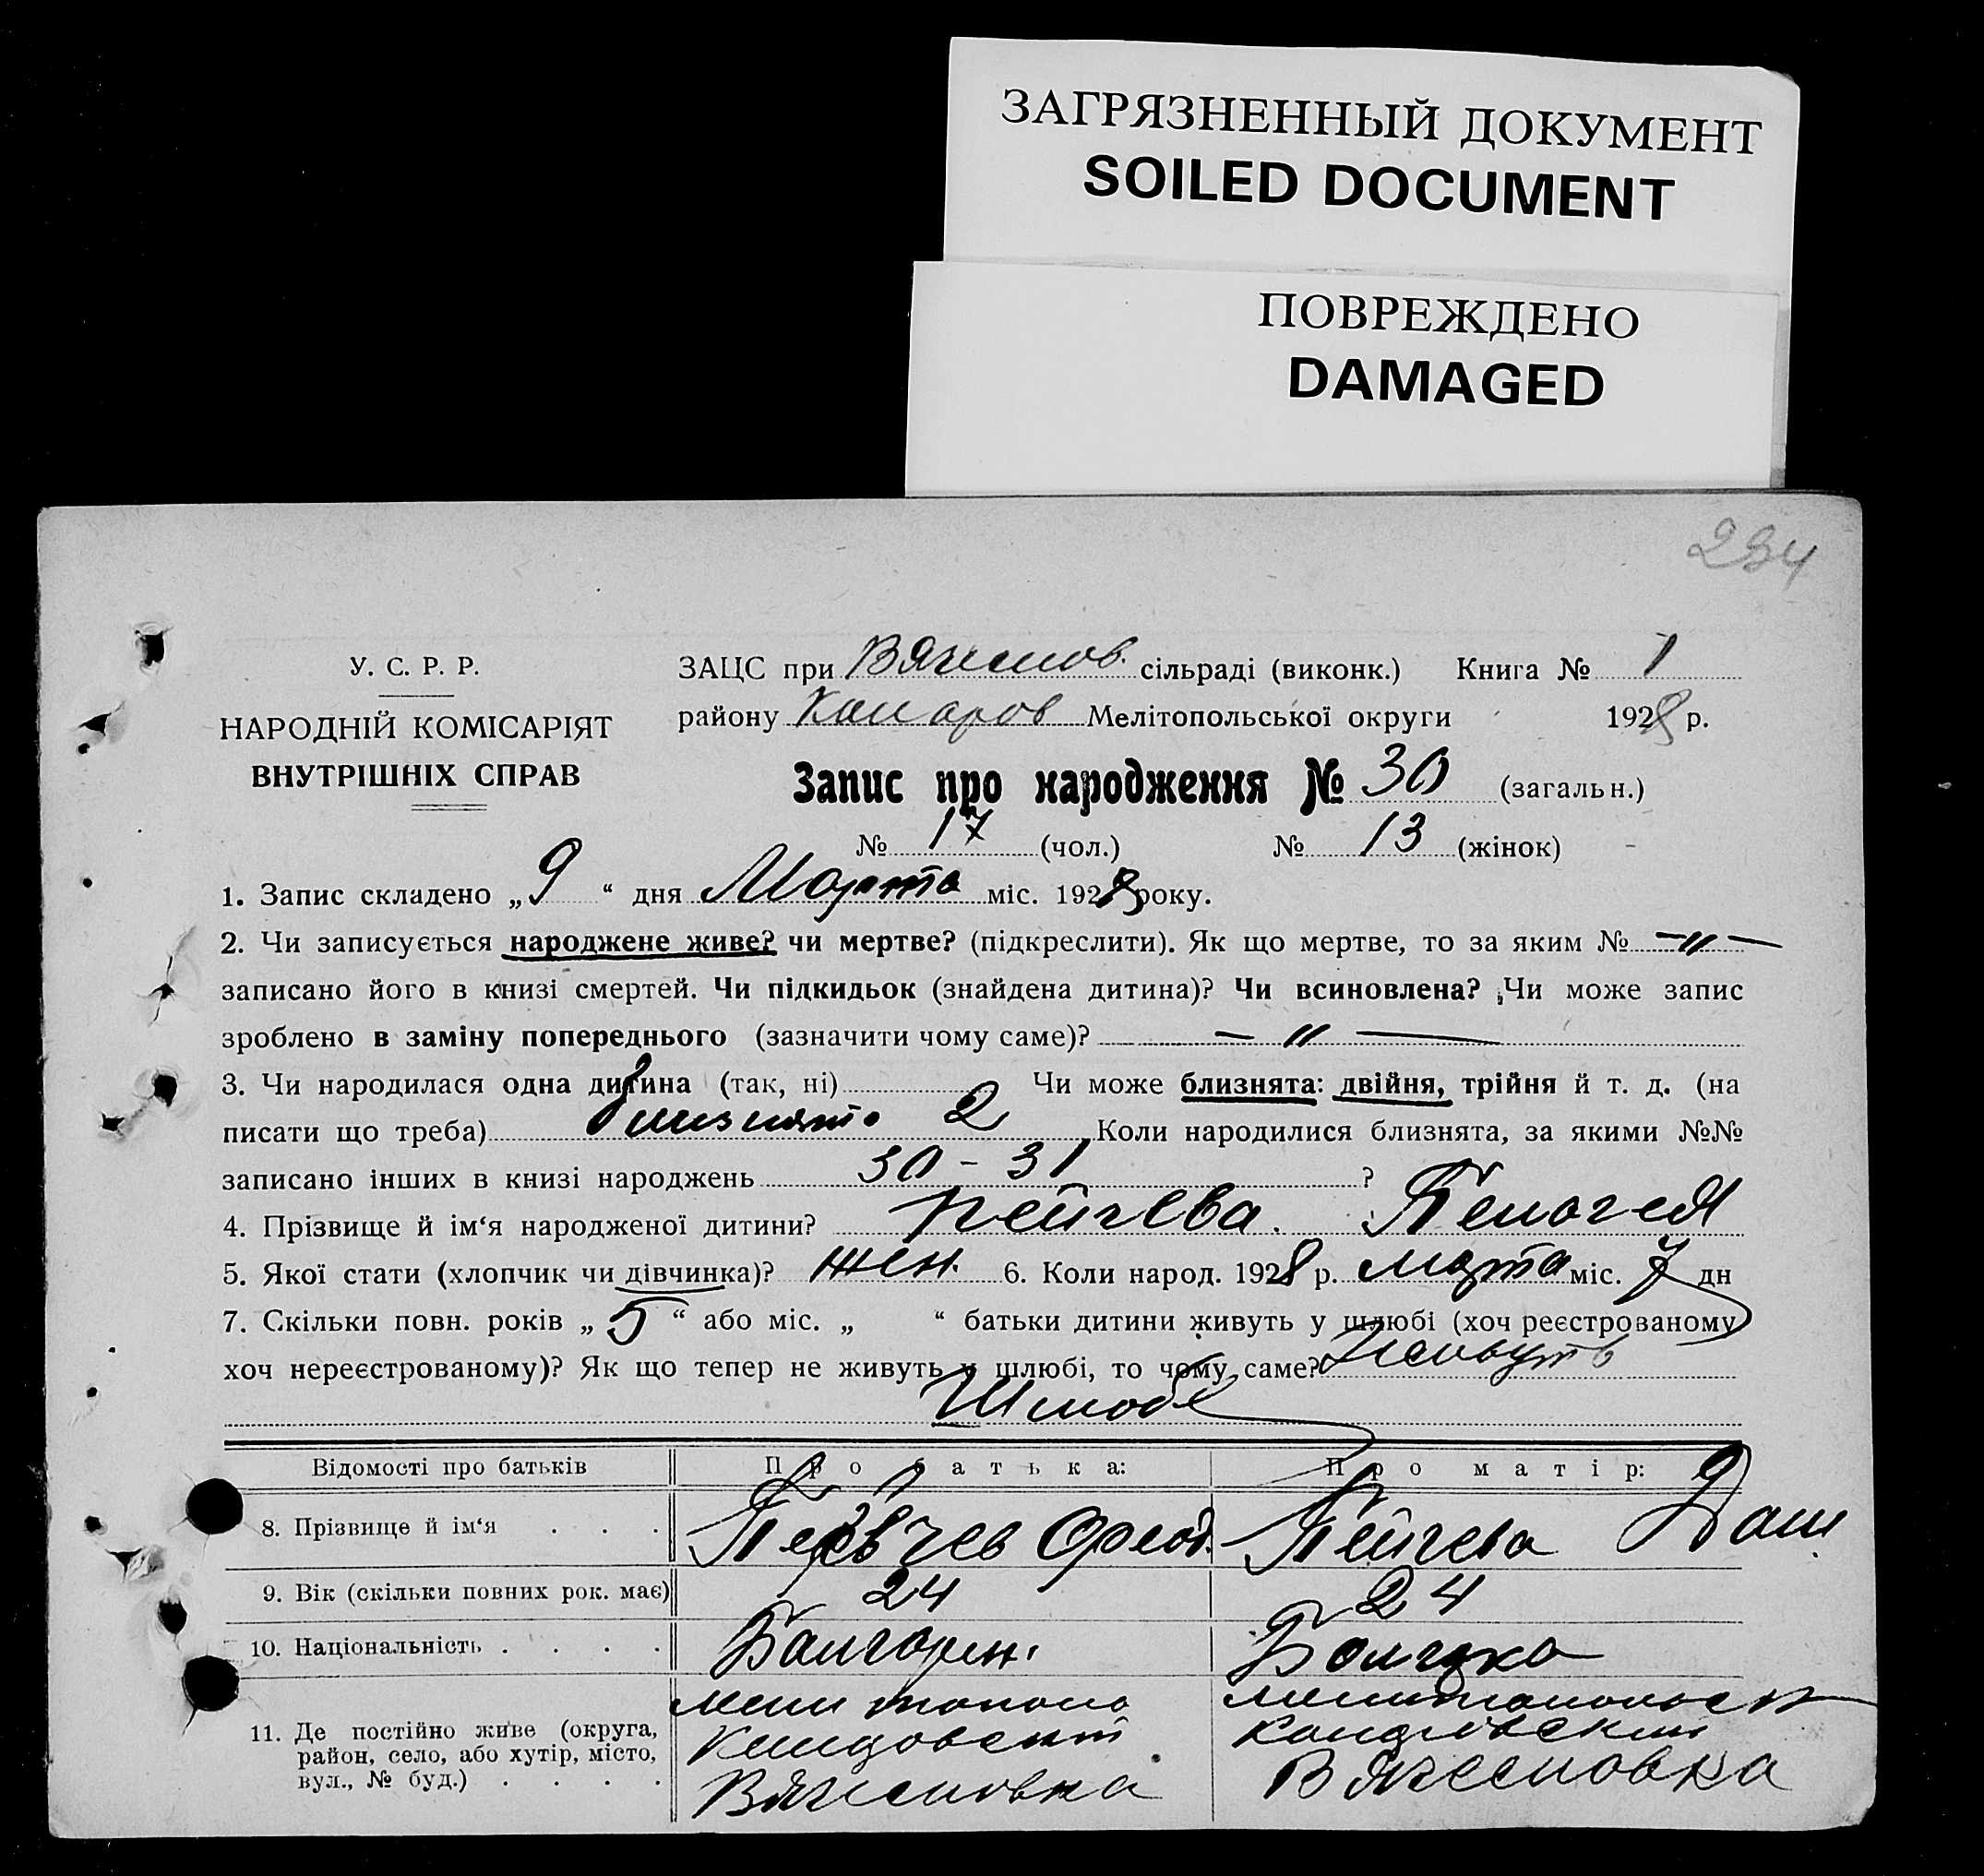 ЗАГРЯЗНЕННЫЙ ДОКУМЕНТ
SOILED DOCUMENT
ПОВРЕЖДЕНО
DAMAGED
234
У. С. Р. Р.
НАРОДНІЙ КОМІСАРІЯТ
ВНУТРІШНІХ СПРАВ
ЗАЦС при Вячеслов. сільраді (виконк.) Книга № 1
району Коларов Мелітопольської округи 1928 р.
Запис про народження № 30 (загальн.)
№ 17 (чол.) № 13 (жінок)
1. Запис складено „ 9 “ дня Марта міс. 1928 року.
2. Чи записується народжене живе? чи мертве? (підкреслити). Як що мертве, то за яким № —"—
записано його в книзі смертей. Чи підкидьок (знайдена дитина)? Чи всиновлена? Чи може запис
зроблено в заміну попереднього (зазначити чому саме)? — " —
3. Чи народилася одна дитина (так, ні) Чи може близнята: двійня, трійня й т. д. (на
писати що треба) близнята 2 Коли народилися близнята, за якими №№
записано інших в книзі народжень 30 - 31 ?
4. Прізвище й ім‘я народженої дитини? Пейчева. Пелагея
5. Якої стати (хлопчик чи дівчинка)? жен. 6. Коли народ. 1928 р. марта міс. 7 дн
7. Скільки повн. років „ 5 “ або міс. „ “ батьки дитини живуть у шлюбі (хоч реєстрованому
хоч нереєстрованому)? Як що тепер не живуть у шлюбі, то чому саме?
Шлюбе
Відомості про батьків Про батька: Про матір:
8. Прізвище й ім‘я . . . Пейчев Феод. Пейчева Даш
9. Вік (скільки повних рок. має) 24 24
10. Національність . . . . Болгарин. Болгарка
11. Де постійно живе (округа,
район, село, або хутір, місто,
вул., № буд.) . . . .
Вячесловка
Вячесловка